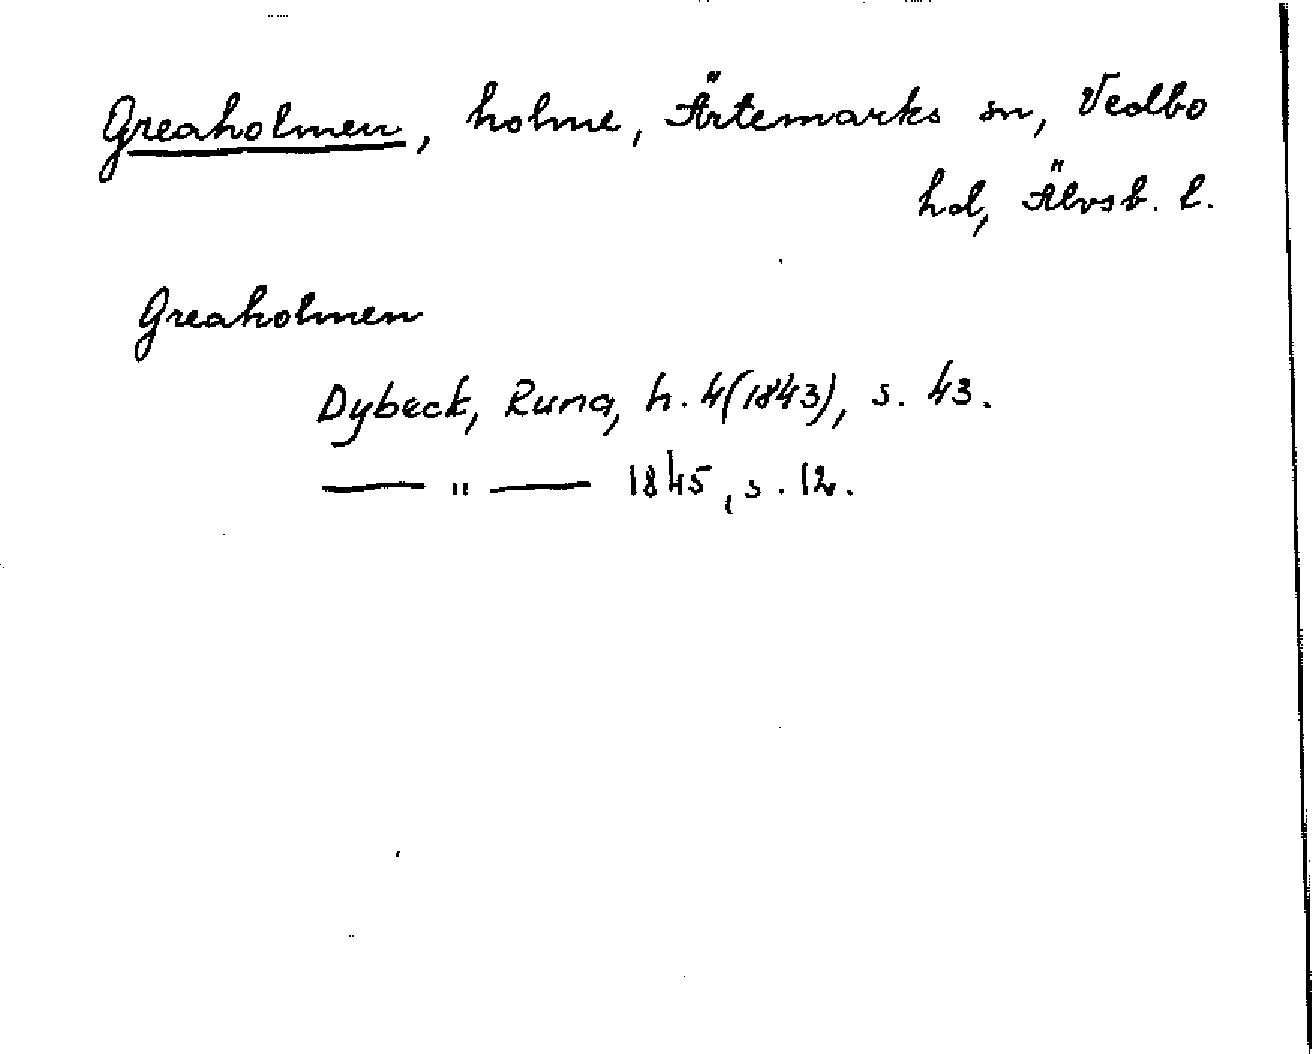 Greaholmen, holme, Ärtemarks sn, Vedbo
hd, Älvsb. l.
Greaholmen
Dybeck, Runa, h. 4(1843), s. 43.
— " — 1845, s. 12.